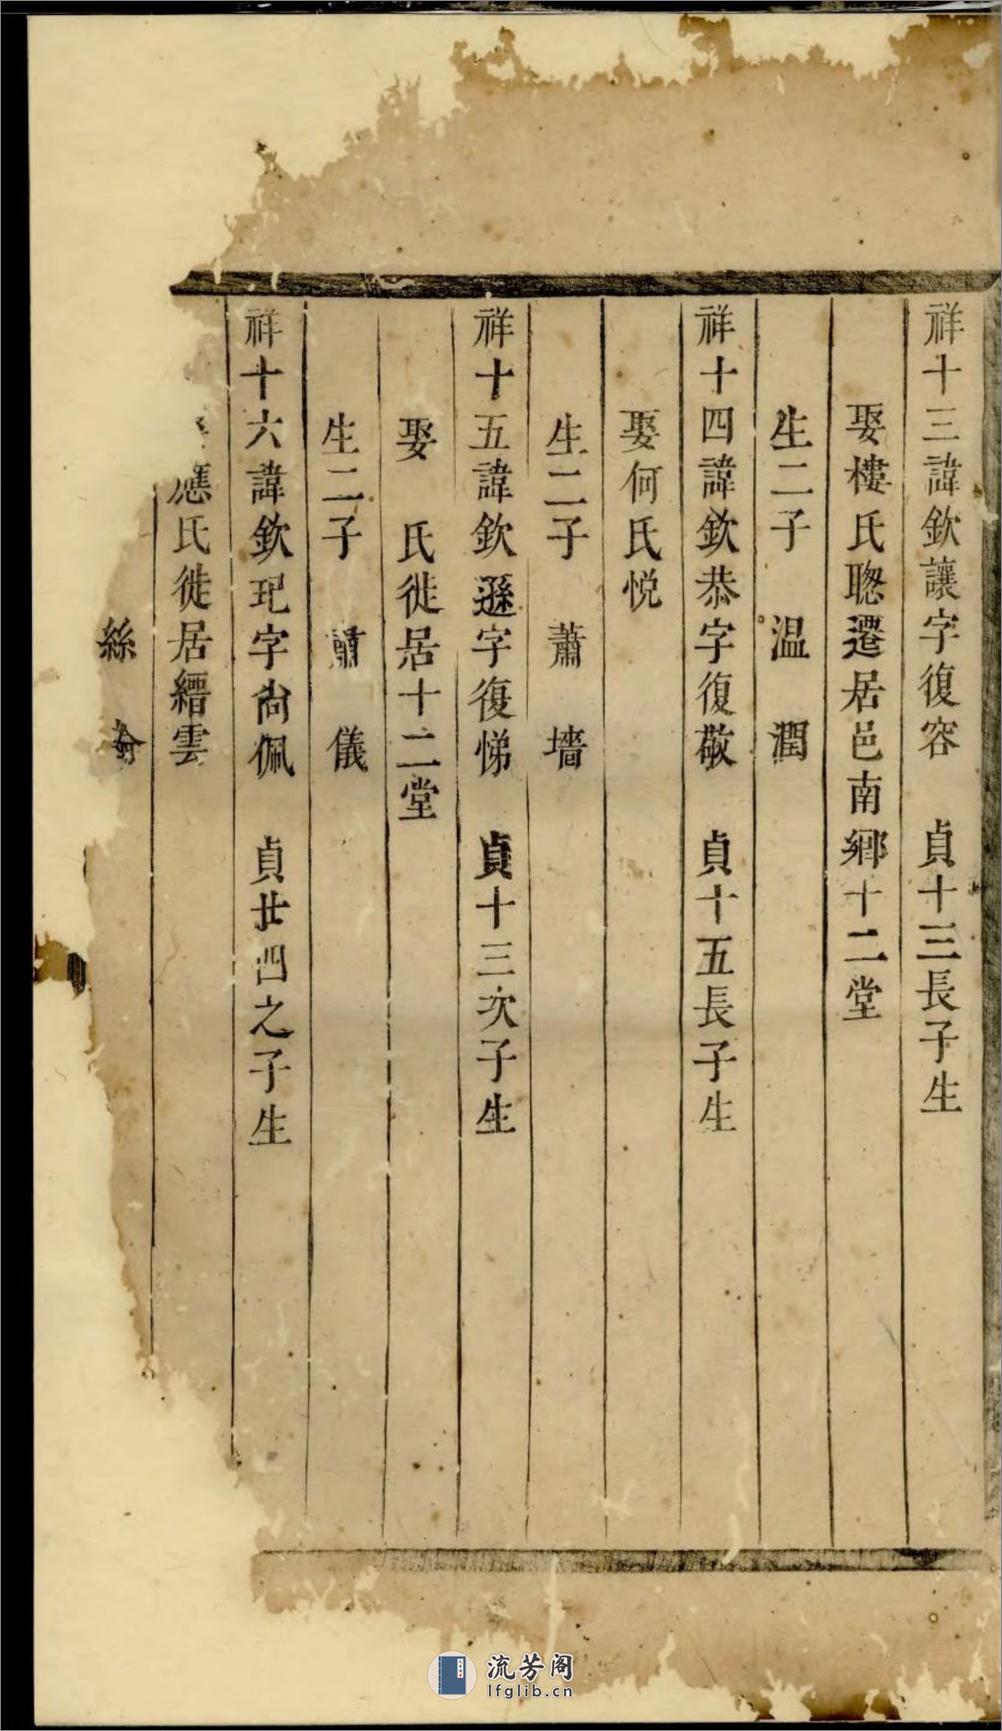 祥十三諱欽讓字復容　貞十三長子生
娶樓氏聰遷居邑南鄉十二堂
生二子　温　潤
祥十四諱欽恭字復敬　貞十五長子生
娶何氏悦
生二子　蕭　墻
祥十五諱欽遜字復悌　貞十三次子生
娶　氏徙居十二堂
生二子　儀
祥十六諱欽玘字尚佩　貞廿四之子生
應氏徙居縉雲
絲
流芳阁
lfglib.cn